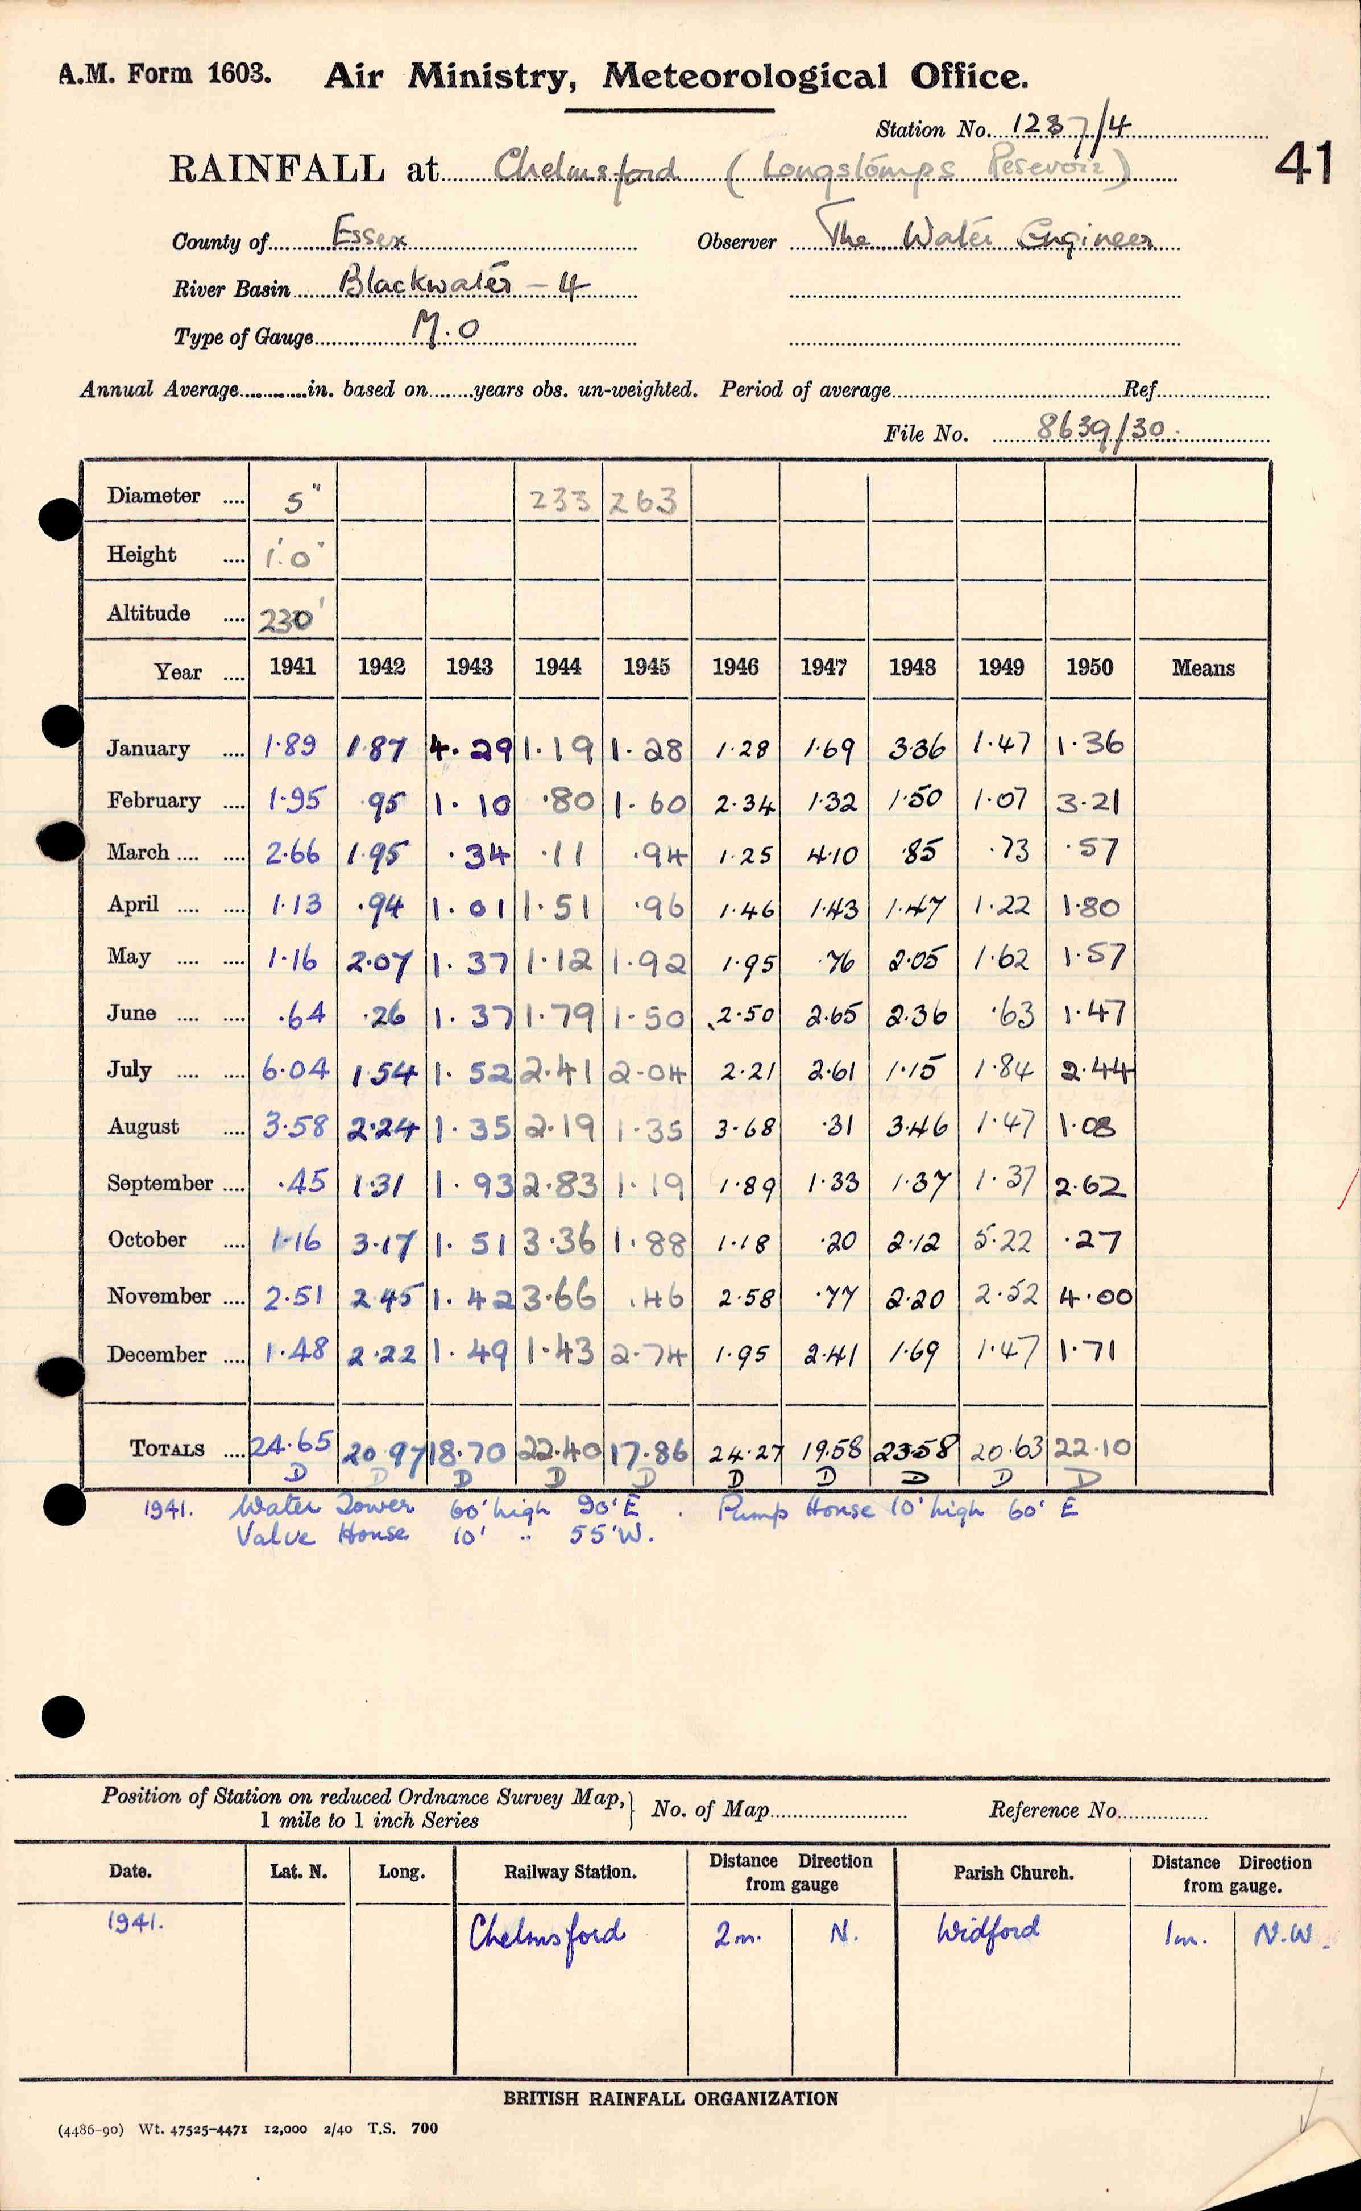 A.M. Form 1603. Air Ministry, Meteorological Office.
Station No. 1287/4
41
RAINFALL at Chelmsford (Longstomps Resevoir)
County of Essex Observer The Water Engineer
River Basin Blackwater - 4
Type of Gauge M.O
Annual Average in. based on years obs. un-weighted. Period of average Ref
File No. 8639/30.
Diameter .... 5" 233 263
Height .... 1'.0"
Altitude .... 230'
Year .... 1941 1942 1943 1944 1945 1946 1947 1948 1949 1950 Means
January .... 1.89 1.87 4.29 1.19 1.28 1.28 1.69 3.36 1.47 1.36
February .... 1.95 .95 1.10 .80 1.60 2.34 1.32 1.50 1.07 3.21
March .... .... 2.66 1.95 .34 .11 .94 1.25 4.10 .85 .73 .57
April .... .... 1.13 .94 1.01 1.51 .96 1.46 1.43 1.47 1.22 1.80
May .... .... 1.16 2.07 1.37 1.12 1.92 1.95 .76 2.05 1.62 1.57
June .... .... .64 .26 1.37 1.79 1.50 2.50 2.65 2.36 .63 1.47
July .... .... 6.04 1.54 1.52 2.41 2.04 2.21 2.61 1.15 1.84 2.44
August .... 3.58 2.24 1.35 2.19 1.35 3.68 .31 3.46 1.47 1.08
September .... .45 1.31 1.93 2.83 1.19 1.89 1.33 1.37 1.37 2.62
October .... 1.16 3.17 1.51 3.36 1.88 1.18 .20 2.12 5.22 .27
November .... 2.51 2.45 1.42 3.66 .46 2.58 .77 2.20 2.52 4.00
December .... 1.48 2.22 1.49 1.43 2.74 1.95 2.41 1.69 1.47 1.71
TOTALS .... 24.65 20.97 18.70 22.40 17.86 24.27 19.58 23.58 20.63 22.10
D D D D D D D D D D
1941. Water Tower 60' high 90' E . Pump House 10' high 60' E
Valve House 10' " 55' W.
Position of Station on reduced Ordnance Survey Map, } No. of Map Reference No.
1 mile to 1 inch Series
Date. Lat. N. Long. Railway Station. Distance Direction from gauge Parish Church. Distance Direction from gauge.
1941. Chelmsford 2m. N. Widford 1m. N.W.
BRITISH RAINFALL ORGANIZATION
(4486-90) Wt. 47525-4471 12,000 2/40 T.S. 700